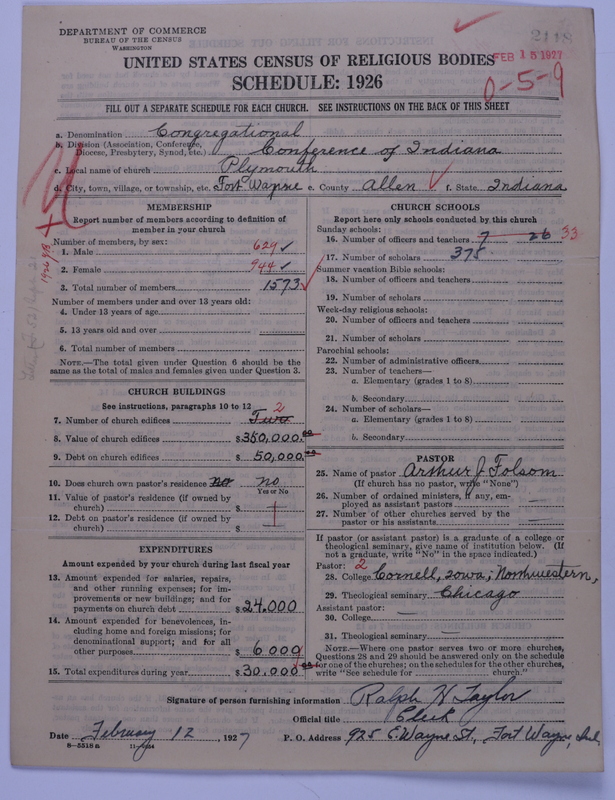 DEPARTMENT OF COMMERCE
BUREAU OF THE CENSUS
WASHINGTON
2118
FEB 15 1927
UNITED STATES CENSUS OF RELIGIOUS BODIES
SCHEDULE: 1926
0-5-9
FILL OUT A SEPARATE SCHEDULE FOR EACH CHURCH. SEE INSTRUCTIONS ON THE BACK OF THIS SHEET
a. Denomination Congregational
b. Division (Association, Conference, Diocese, Presbytery, Synod, etc.) Conference of Indiana
c. Local name of church Plymouth
d. City, town, village, or township, etc. Fort Wayne e. County Allen f. State Indiana
MEMBERSHIP
Report number of members according to definition of
member in your church
Number of members, by sex:
1. Male 629
2. Female 944
3. Total number of members 1573
Number of members under and over 13 years old:
4. Under 13 years of age
5. 13 years old and over
6. Total number of members
NOTE.—The total given under Question 6 should be
same as the total of males and females given under Question 3.
CHURCH BUILDINGS
See instructions, paragraphs 10 to 12
7. Number of church edifices Two 2
8. Value of church edifices $350,000.00
9. Debt on church edifices $50,000.00
10. Does church own pastor's residence no no
Yes or No
11. Value of pastor's residence (if owned by
church) $
12. Debt on pastor's residence (if owned by
church) $
EXPENDITURES
Amount expended by your church during last fiscal year
13. Amount expended for salaries, repairs,
and other running expenses; for im-
provements or new buildings; and for
payments on church debt $24.000
14. Amount expended for benevolences, in-
cluding home and foreign missions; for
denominational support; and for all
other purposes $6 000
15. Total expenditures during year $30.000.00
CHURCH SCHOOLS
Report here only schools conducted by this church
Sunday schools:
16. Number of officers and teachers 7 26 33
17. Number of scholars 375
Summer vacation Bible schools:
18. Number of officers and teachers
19. Number of scholars
Week-day religious schools:
20. Number of officers and teachers
21. Number of scholars
Parochial schools:
22. Number of administrative officers
23. Number of teachers—
a. Elementary (grades 1 to 8)
b. Secondary
24. Number of scholars—
a. Elementary (grades 1 to 8)
b. Secondary
PASTOR
25. Name of pastor Arthur J Folsom
(If church has no pastor, write "None")
26. Number of ordained ministers, if any, em-
ployed as assistant pastors —
27. Number of other churches served by the
pastor or his assistants —
If pastor (or assistant pastor) is a graduate of a college or
theological seminary, give name of institution below. (If
not a graduate, write "No" in the space indicated.)
Pastor: 2
28. College Cornell, Iowa; Northwestern,
29. Theological seminary Chicago
Assistant pastor:
30. College —
31. Theological seminary —
NOTE.—Where one pastor serves two or more churches,
Questions 28 and 29 should be answered only on the schedule
for one of the churches; on the schedules for the other churches,
write "See schedule for church."
Signature of person furnishing information Ralph H Taylor
Official title Clerk
Date February 12, 1927 P. O. Address 925 C. Wayne St., Fort Wayne, Ind
8—5518 a